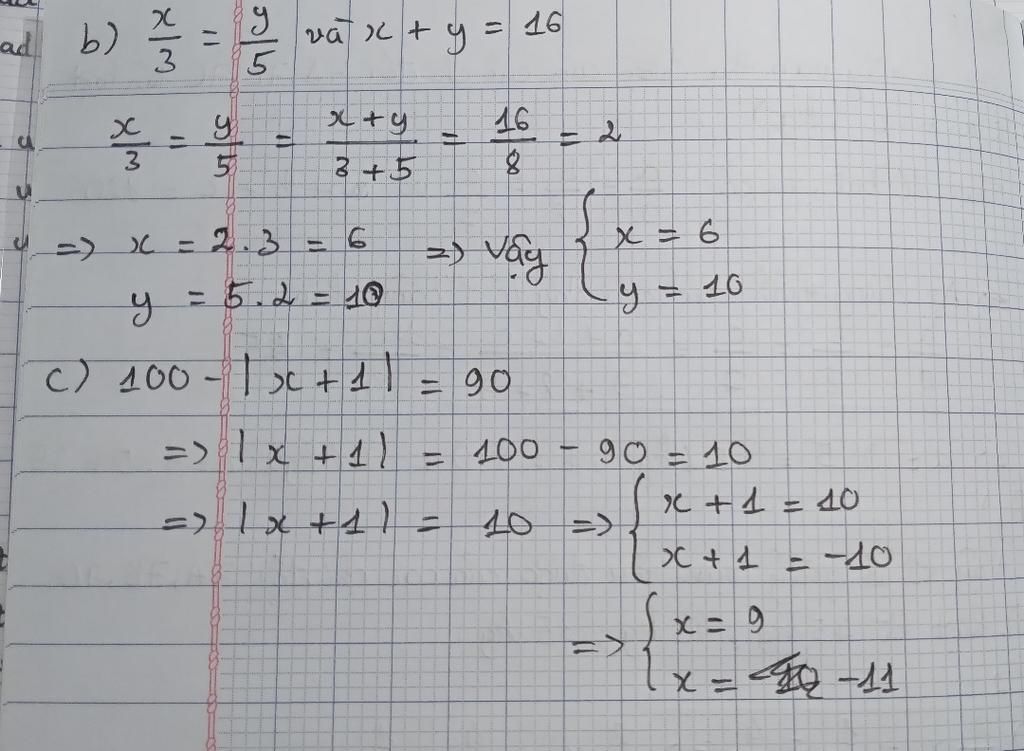 ad
b) x/3 = y/5 và x + y = 16
x/3 = y/5 = (x+y)/(3+5) = 16/8 = 2
y
y
y
=> x = 2.3 = 6 => Vậy { x = 6
y = 5.2 = 10 y = 10
c) 100 - |x+1| = 90
=> |x+1| = 100 - 90 = 10
=> |x+1| = 10 => { x+1 = 10
x+1 = -10
=> { x = 9
x = -11